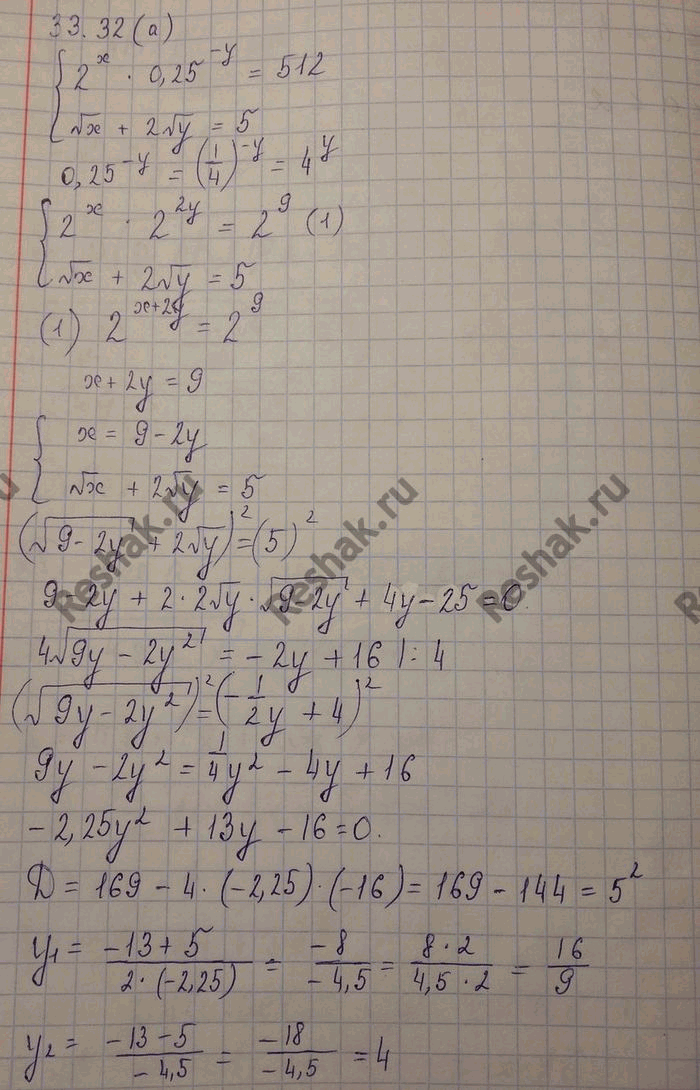 33.32 (а)
{ 2^x · 0,25^{-y} = 512
√x + 2√y = 5
0,25^{-y} = (1/4)^{-y} = 4^y
{ 2^x · 2^{2y} = 2^9 (1)
√x + 2√y = 5
(1) 2^{x+2y} = 2^9
x + 2y = 9
{ x = 9 - 2y
√x + 2√y = 5
(√(9-2y) + 2√y)^2 = (5)^2
9 - 2y + 2·2√y · √(9-2y) + 4y - 25 = 0.
4√(9y - 2y^2) = -2y + 16 |: 4
(√(9y - 2y^2))^2 = (-1/2 y + 4)^2
9y - 2y^2 = 1/4 y^2 - 4y + 16
-2,25y^2 + 13y - 16 = 0.
D = 169 - 4·(-2,25)·(-16) = 169 - 144 = 5^2
y_1 = (-13 + 5)/(2·(-2,25)) = -8/-4,5 = (8·2)/(4,5·2) = 16/9
y_2 = (-13 - 5)/-4,5 = -18/-4,5 = 4
Reshak.ru
Reshak.ru
Reshak.ru